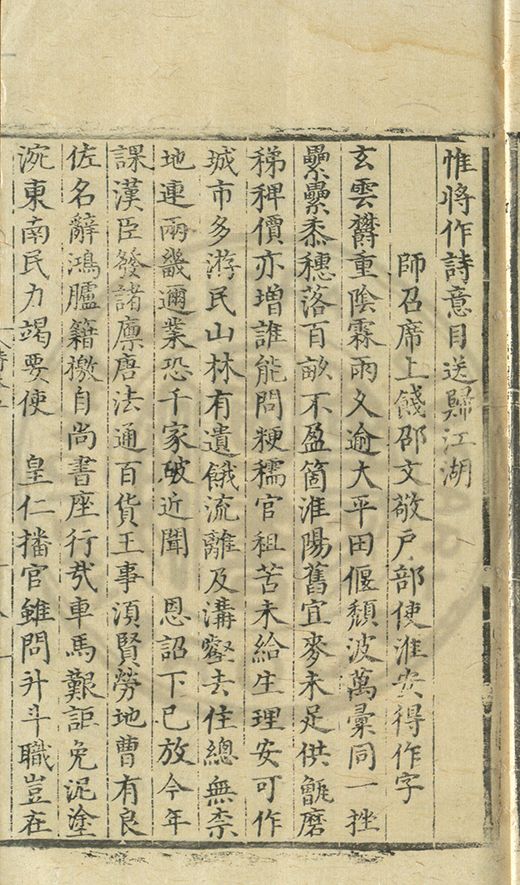 惟將作詩意目送歸江湖
師召席上餞邵文敬戶部使淮安得作字
玄雲欝重陰霖雨久逾大平田偃頹波萬彙同一挫
纍纍黍穗落百畝不盈箇淮陽舊宜麥未足供氈磨
稊稗價亦増誰能問粳穤官租苦未給生理安可作
城市多游民山林有遺餓流離及溝壑去住總無柰
地連兩畿邇業恐千家破近聞　恩詔下已放今年
課漢臣發諸廪唐法通百貨王事須賢勞地曹有良
佐名辭鴻臚籍檄自尚書座行㦲車馬艱詎免泥塗
涴東南民力竭要使　皇仁播官雖問升斗職豈在